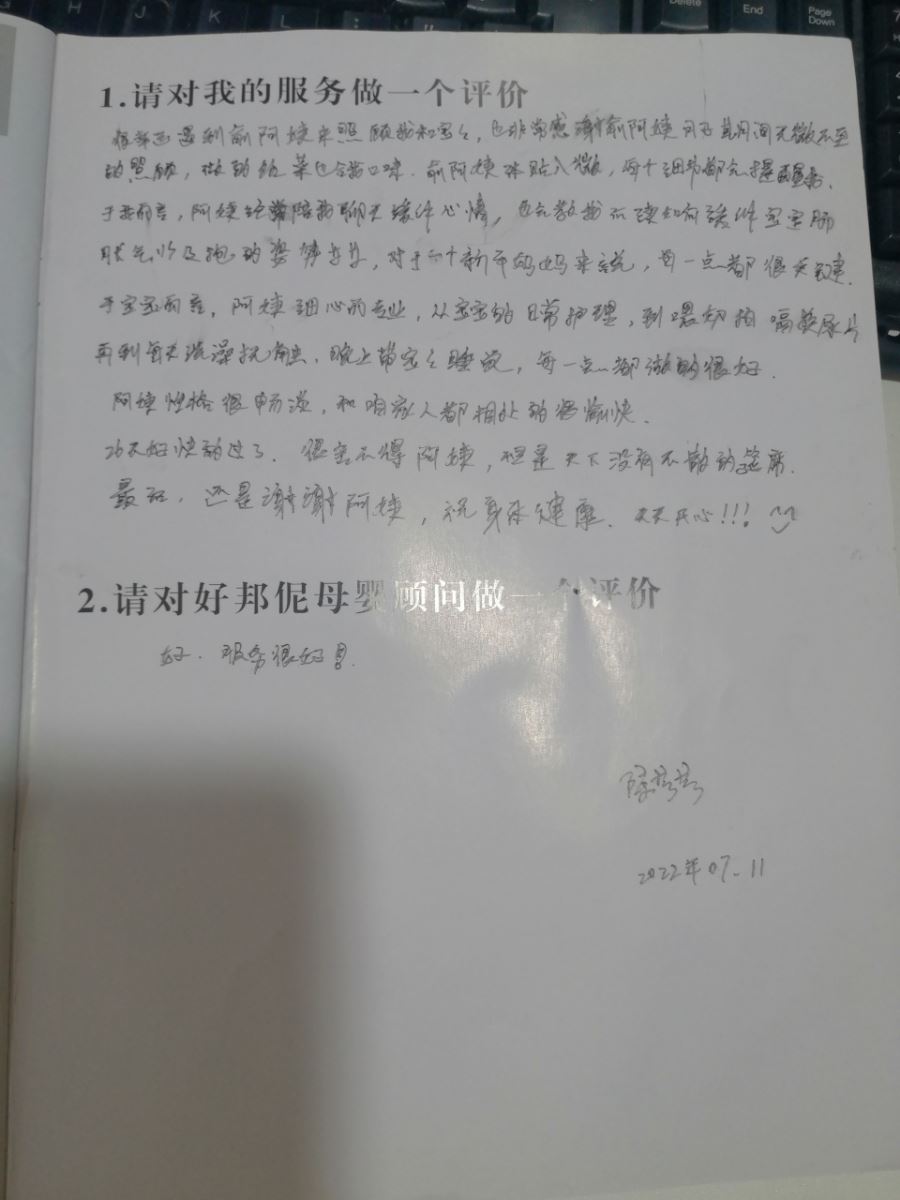 G H J K L
Delete End Page Down
1.请对我的服务做一个评价
很幸运遇到俞阿姨来照顾我和宝宝，也非常感谢俞阿姨月子其间无微不至
的照顾，做的饭菜也合我口味．俞阿姨体贴入微，每个细节都会提醒我．
于我而言，阿姨经常陪我聊天缓件心情，也会教我不续如何缓件宝宝肠
胀气以及抱的姿势等等，对于一个新手妈妈来说，每一点都很关键．
于宝宝而言，阿姨细心而专业，从宝宝的日常护理，到喂奶拍嗝换尿片
再到每天洗澡抚触、晚上带宝宝睡觉，每一点都做的很好．
阿姨性格很，和咱家人都相处的很愉快．
26天好快的过了．很舍不得阿姨，但是天下没有不散的筵席．
最后，还是谢谢阿姨，祝身体健康．天天开心!!!
2.请对好邦伲母婴顾问做一个评价
好．服务很好
2022年07.11